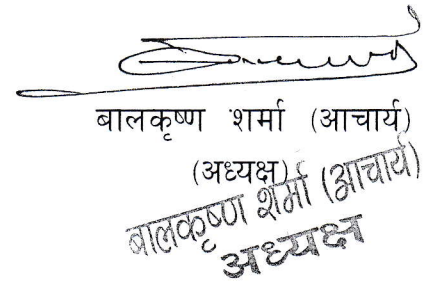 बालकृष्ण शर्मा (आचार्य)
(अध्यक्ष)
बालकृष्ण शर्मा (आचार्य)
अध्यक्ष